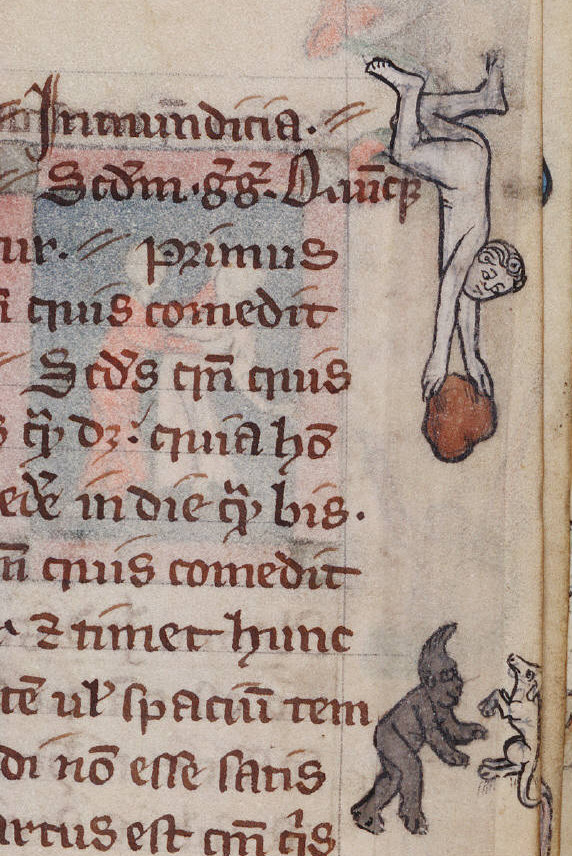 Inmundicia.
Scd̄m. gḡ. Quīcqꝫ
ur. Primus
qn̄ quis comedit
Scd̄s qn̄ quis
dꝫ. quia hō
in die bis.
quis comedit
⁊ timet hunc
tē ul̄ spaciū tem
di nō esse satis
artus est qn̄ q̄s